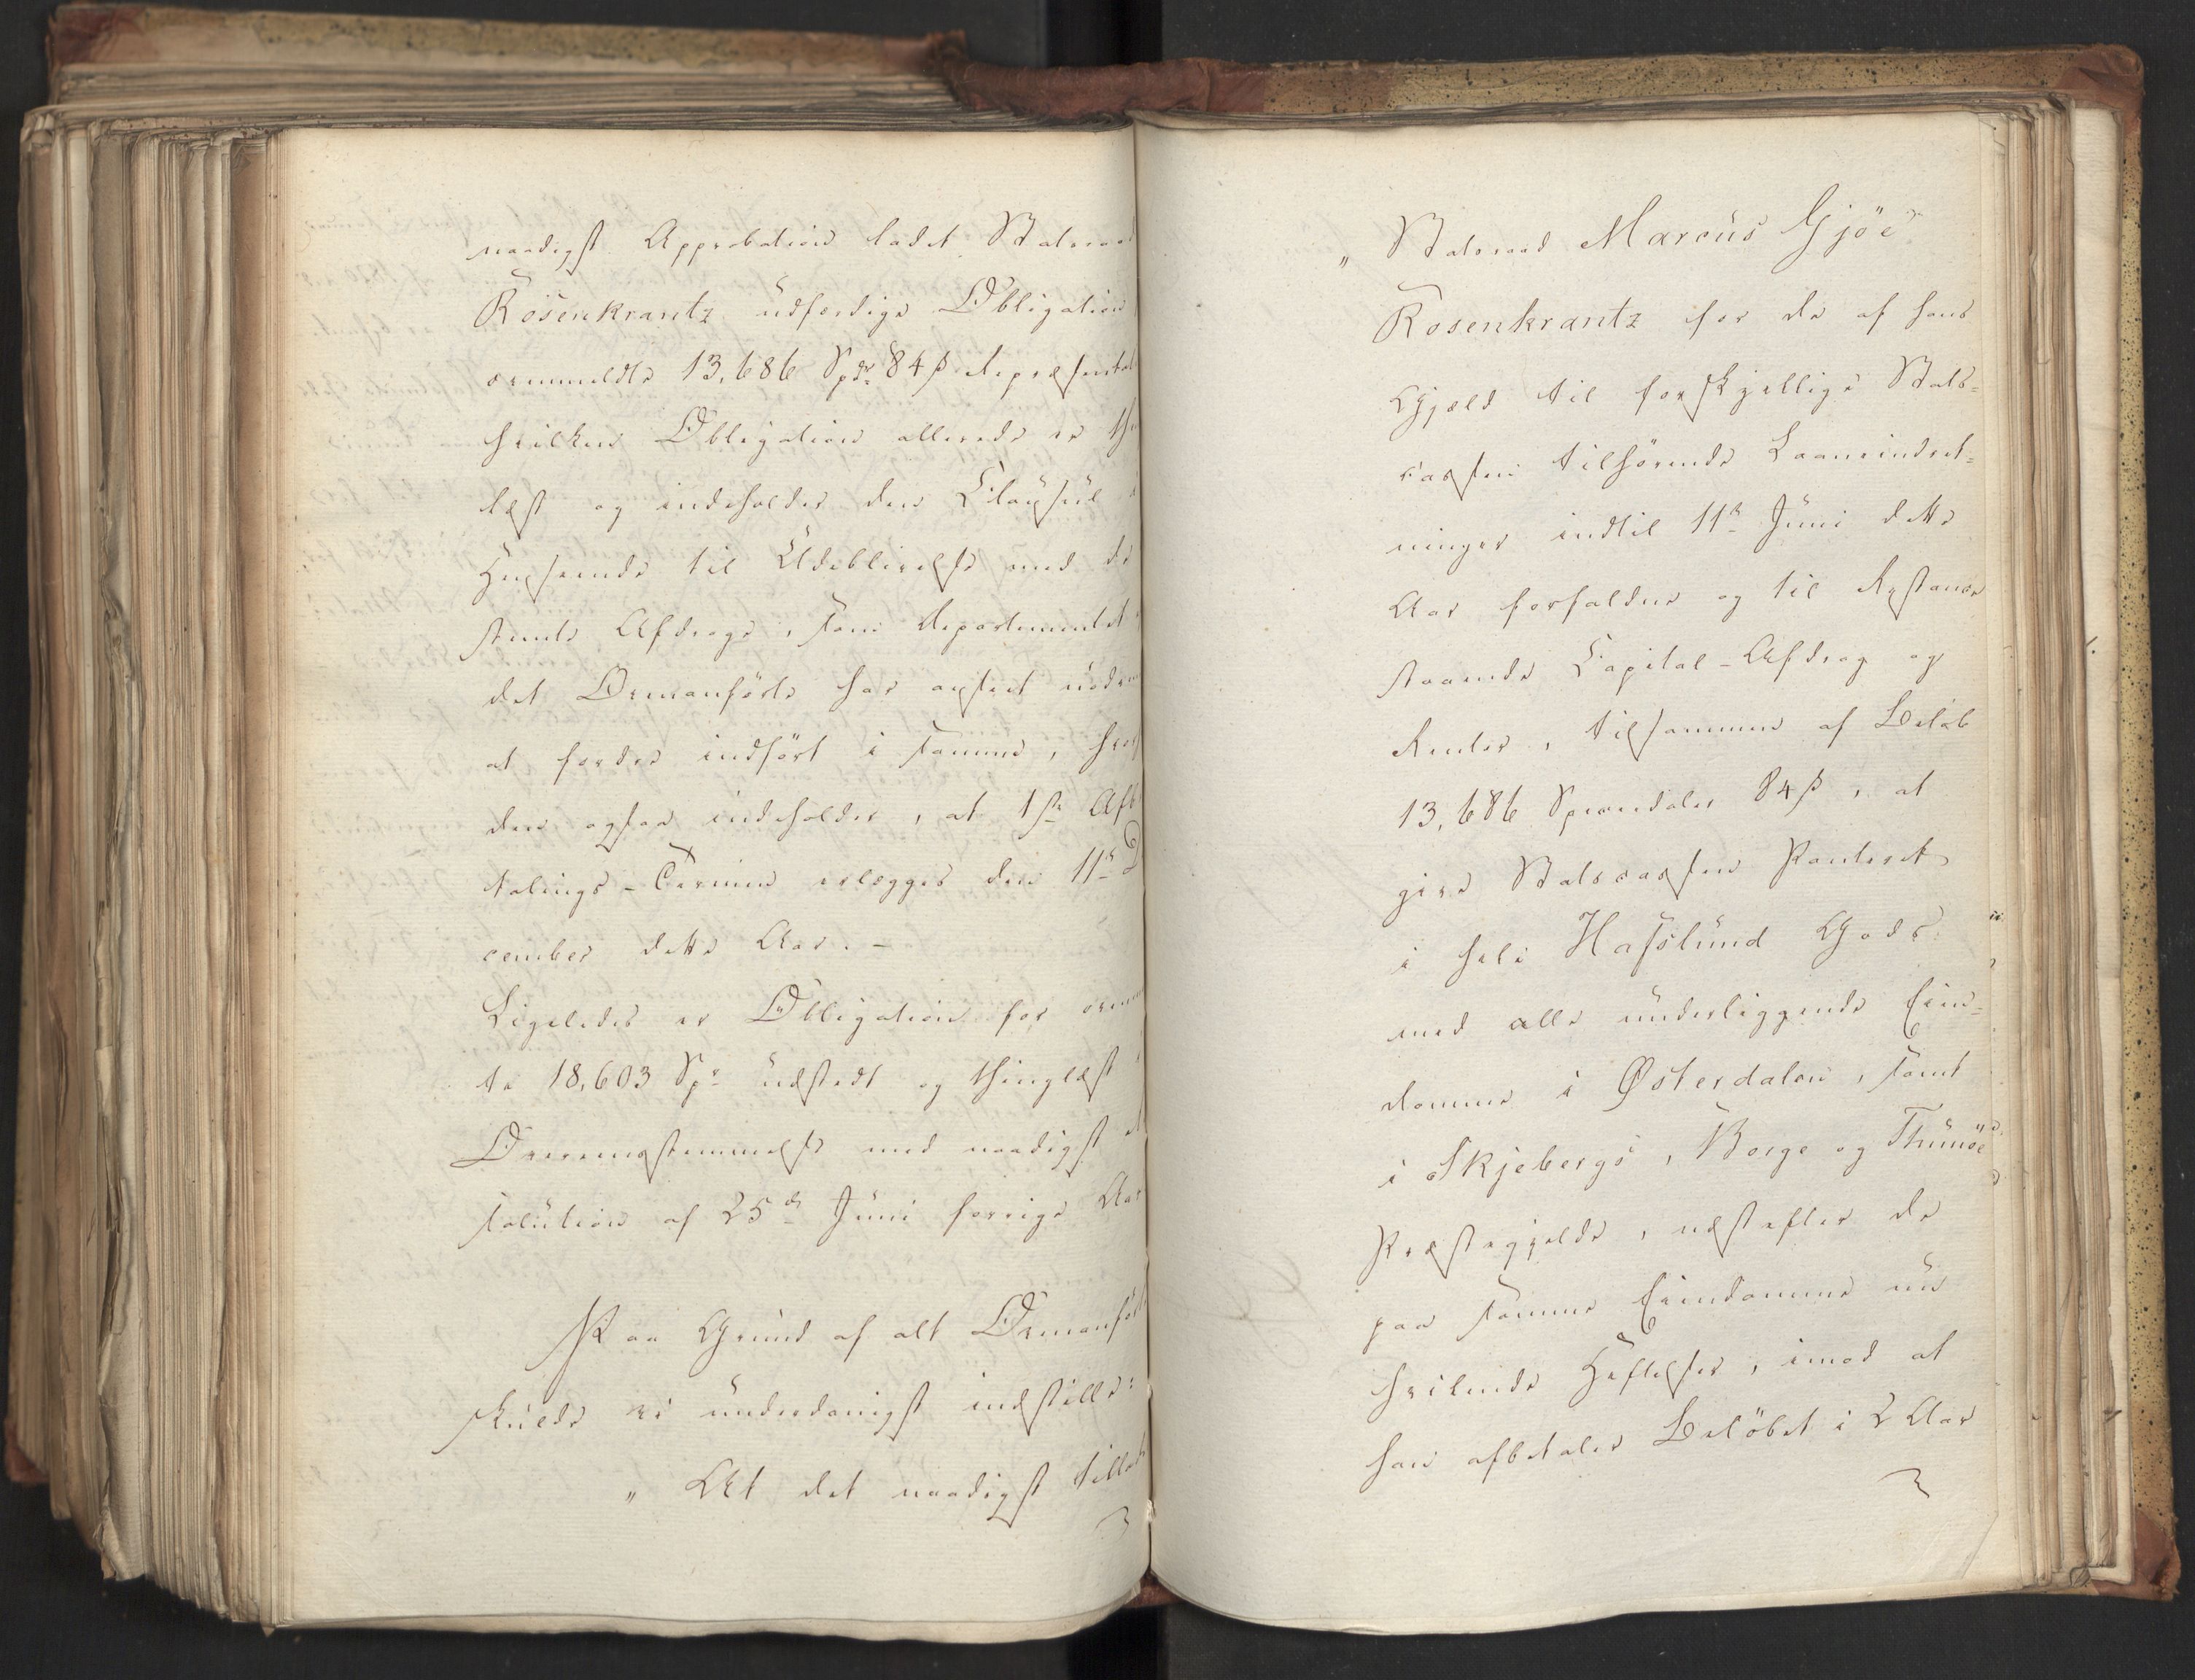 naadigst Approbation ladet Statsraad
Rosenkrantz udferdige Obligation
ovenmeldte 13,686 Spdr 84 ß Repræsentat
hvilken Obligation allerede er thi
læst og indeholder den Clausul i
Henseende til Udeblivelse med de
stemte Afdrage, som Departementet i
det Ovenanförte har anseet nödven
at forder indfört i samme, hvor
den ogsaa indeholder, at 1ste Afb
talings-Termin erlægges den 11te D
cember dette Aar. –
Ligeledes er Obligation for ovenm
te 18,603 Spr udstedt og thinglæst i
Overeenstemmelse med naadigst R
solution af 25de Juni forrige Aar
Paa Grund af alt Ovenanför
skulde vi underdanigst indstille:
„ At det naadigst tillad
„ Statsraad Marcus Gjöe
Rosenkrantz for de af hans
Gjæld til forskjellige Stats=
cassen tilhörende Laaneindret=
ninger indtil 11te Juni dette
Aar forfaldne og til Restance
staaende Capital-Afdrag og
Renter, tilsammen af Belöb
13,686 Speciedaler 84 ß, at
give Statscassen Panteret
i hele Hafslund Gods
med alle underliggende Eien=
domme i Østerdalen, samt
i Skjebergs, Borge og Thunöe
Præstegjelde, næstefter de
paa samme Eiendomme nu
hvilende Heftelser, imod at
han afbetaler Belöbet i 2 Aar